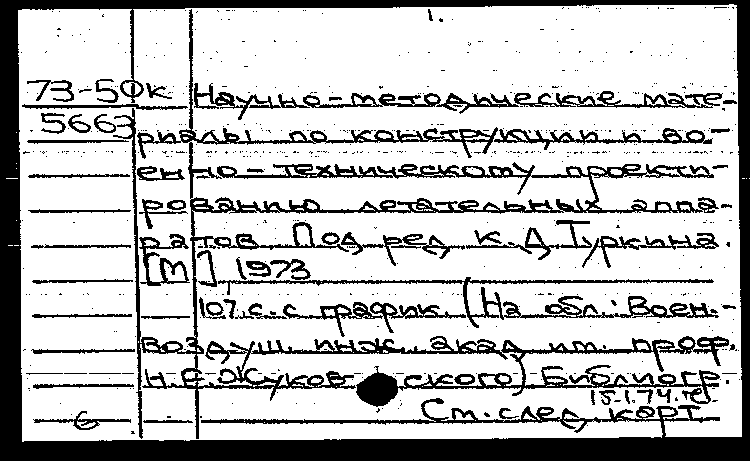 1.
73-50к Научно-методические мате-
5663 риалы по конструкции и во-
енно-техническому проекти-
рованию летательных аппа-
ратов. Под ред. К. Д. Туркина.
[М] 1973
107 с. с график. (На обл.: Воен.-
воздуш. инж. акад им. проф.
Н. Е. Жуковского) Библиогр.
15.1.74.
См. след. карт